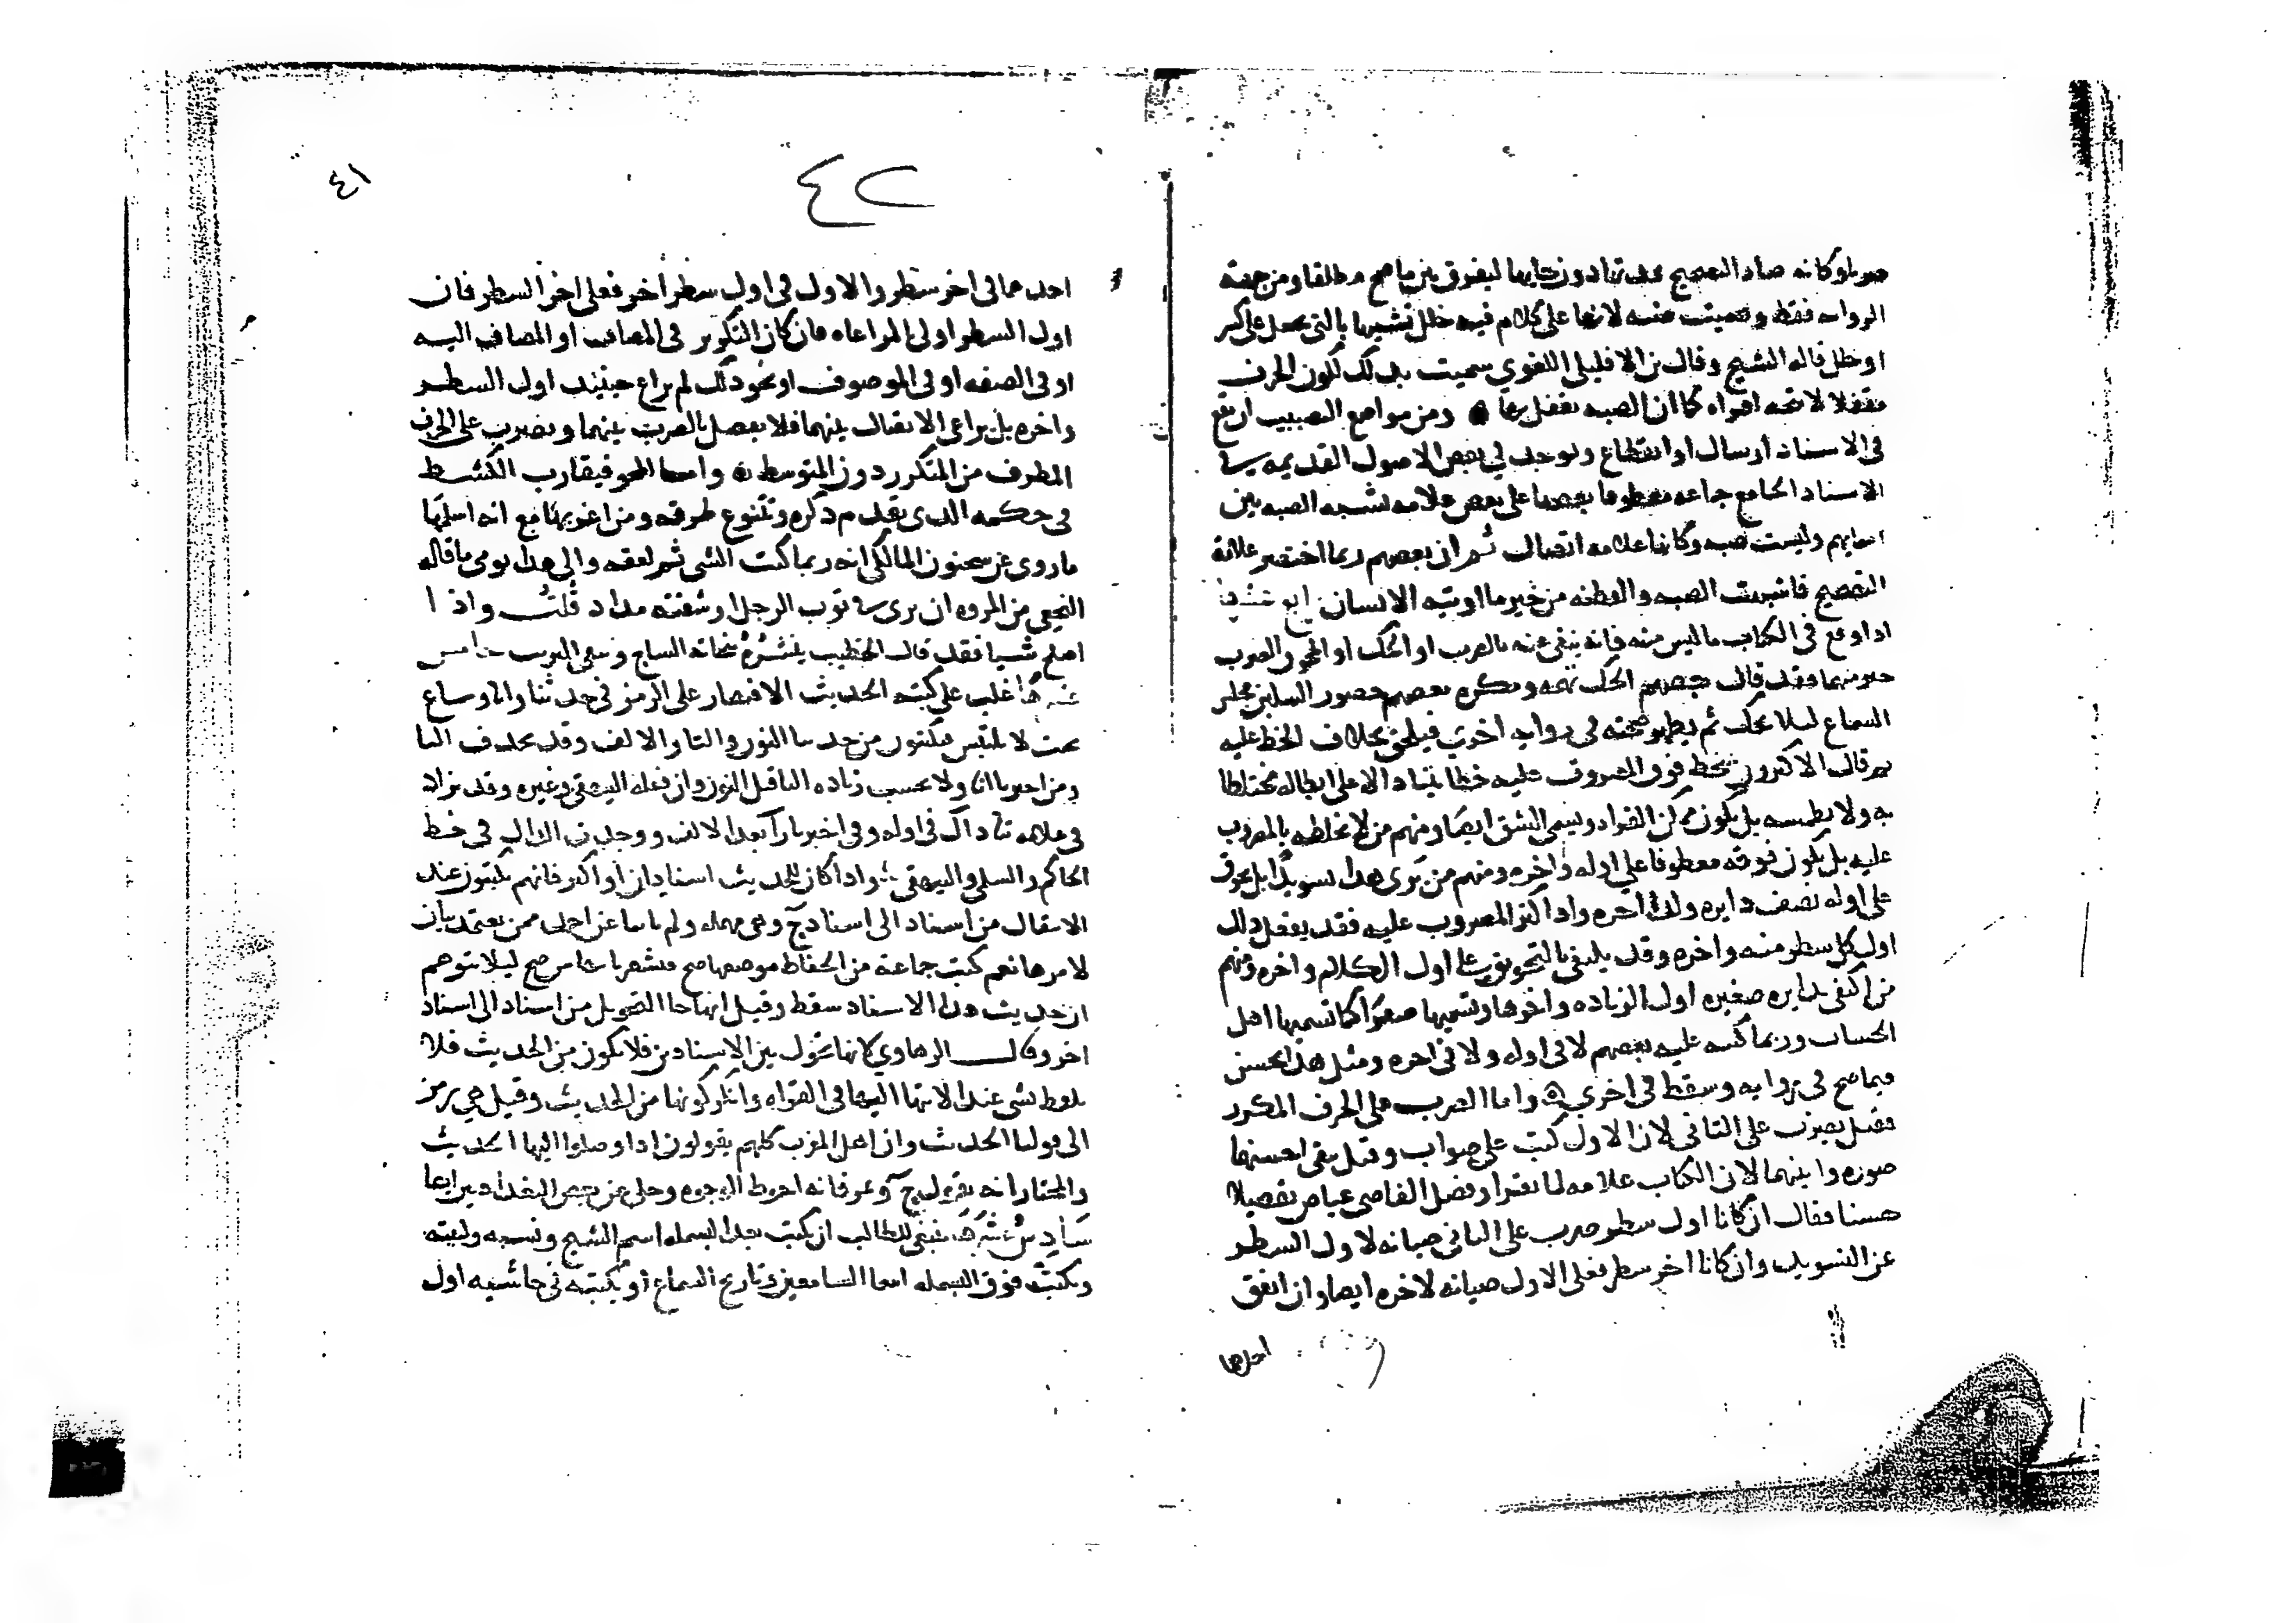 صح ولو كانه صاد التصحيح بمدتها دون حايها ليفرق بين ما صح مطلقا ومن جهة
الرواية فقط وسميت ضبه لانها على كلام فيه خلل تشبيها بالتي تجعل على كسر
او خلل قاله الشيخ وقال بن الافليلي اللغوي سميت بذلك لكون الحرف
مقفلا لا يتجه لقراه كما ان الضبه يقفل بها ومن مواضع التضبيب ان يقع
في الاسناد ارسال او انقطاع ويوجد في بعض الاصول القديمه في
الاسناد الجامع جماعه معطوفا بعضها على بعض علامه تشبه الضبه بين
اسمايهم وليست ضبه وكانها علامه اتصال ثم ان بعضهم ربما اختصر علامة
التصحيح فاشبهت الضبه والفطنه من خير ما اوتيه الانسان رابع عشرها
اذا وقع في الكتاب ما ليس منه فانه ينفى عنه بالضرب او الحك او المحو والضرب
خير منهما فقد قال بعضهم الحك تهمه وبكره بعضهم حضور السكين مجلس
السماع ليلا يحك ثم يظهر صحته في روايه اخرى فيلحق بخلاف الخط عليه
ثم قال الاكثرون يخط فوق المضروب عليه خطا بينا دالا على ابطاله مختلطا
به ولا يطمسه بل يكون ممكن القراه ويسمى الشق ايضا ومنهم من لا يخلطه بالمضروب
عليه بل يكون فوقه معطوفا على اوله واخره ومنهم من يرى هذا تسويدا بل يحوق
على اوله نصف دايره وكذا اخره واذا كثر المضروب عليه فقد يفعل ذلك
اول كل سطر منه واخره وقد يكتفى بالتحويق على اول الكلام واخره ومنهم
من اكتفى بدايره صغيره اول الزياده واخرها وتسميها صفرا كما تسميها اهل
الحساب وربما كتب عليه بعضهم لا في اوله ولا في اخره ومثل هذا يحسن
فيما صح في روايه وسقط في اخرى ه واما الضرب على الحرف المكرر
فقيل يضرب على الثاني لان الاول كتب على صواب وقيل يبقى احسنهما
صوره وابينهما لان الكتاب علامه لما يقرا وفصل القاضي عياض تفصيلا
حسنا فقال ان كانا اول سطر ضرب على الثاني صيانه لاول السطر
عن التسويد وان كانا اخر سطر فعلى الاول صيانه لاخره ايضا وان اتفق
احدهما
٤٢
٤١
احدهما في اخر سطر والاول في اول سطر اخر فعلى اخر السطر فان
اول السطر اولى بالمراعاه فان كان التكرير في المضاف او المضاف اليه
او في الصفه او في الموصوف او نحو ذلك لم يراع حينيذ اول السطر
واخره بل يراعى الاتصال بينهما فلا يفصل بالضرب بينهما ويضرب على الحرف
المتطرف من المتكرر دون المتوسط ه واما المحو فيقارب الكشط
في حكمه الذي تقدم ذكره وتتنوع طرقه ومن اغربها مع انه اسلمها
ما روي عن سحنون المالكي انه ربما كتب الشي ثم لعقه والى هذا يومي ما قاله
النخعي من المروه ان يرى في ثوب الرجل او شفته مداد قلت واذا
اصلح شيا فقد قال الخطيب ينشره بنحاته الساج وينفى الترب خامس
عشرها غلب على كتبه الحديث الاقتصار على الرمز في حدثنا وانا وشاع
بحيث لا يلتبس فيكتبون من حدثنا النون والثا والالف وقد يحذف الثا
ومن اخبرنا انا ولا يحسن زياده البا قبل النون وان فعله البيهقي وغيره وقد يزاد
في علامه ثنا دال في اوله وفي اخبرنا را بعد الالف ووجدت الدال في خط
الحاكم والسلمي والبيهقي ه واذا كان للحديث اسنادان او اكثر فانهم يكتبون عند
الانتقال من اسناد الى اسناد ح وهي مهمله ولم ياتنا عن احد ممن يعتمد بيان
لامرها نعم كتب جماعة من الحفاظ موضعها صح فيشعر بانها رمز صح ليلا يتوهم
ان حديث هذا الاسناد سقط وقيل انها حا التحويل من اسناد الى اسناد
اخر وقال الرهاوي كانها تحول بين الاسنادين فلا تكون من الحديث فلا
يلفظ بشي عند الانتها اليها في القراه وانكر كونها من الحديث وقيل هي رمز
الى قولنا الحديث وان اهل المغرب كلهم يقولون اذا وصلوا اليها الحديث
والمختار انه يقول ح ويمر فانه احوط الوجوه وحكي عن بعض البغداديين ايضا
سادس عشرها ينبغي للطالب ان يكتب بعد البسمله اسم الشيخ ونسبه وكنيته
ويكتب فوق البسمله اسما السامعين وتاريخ السماع او يكتبه في حاشيه اول